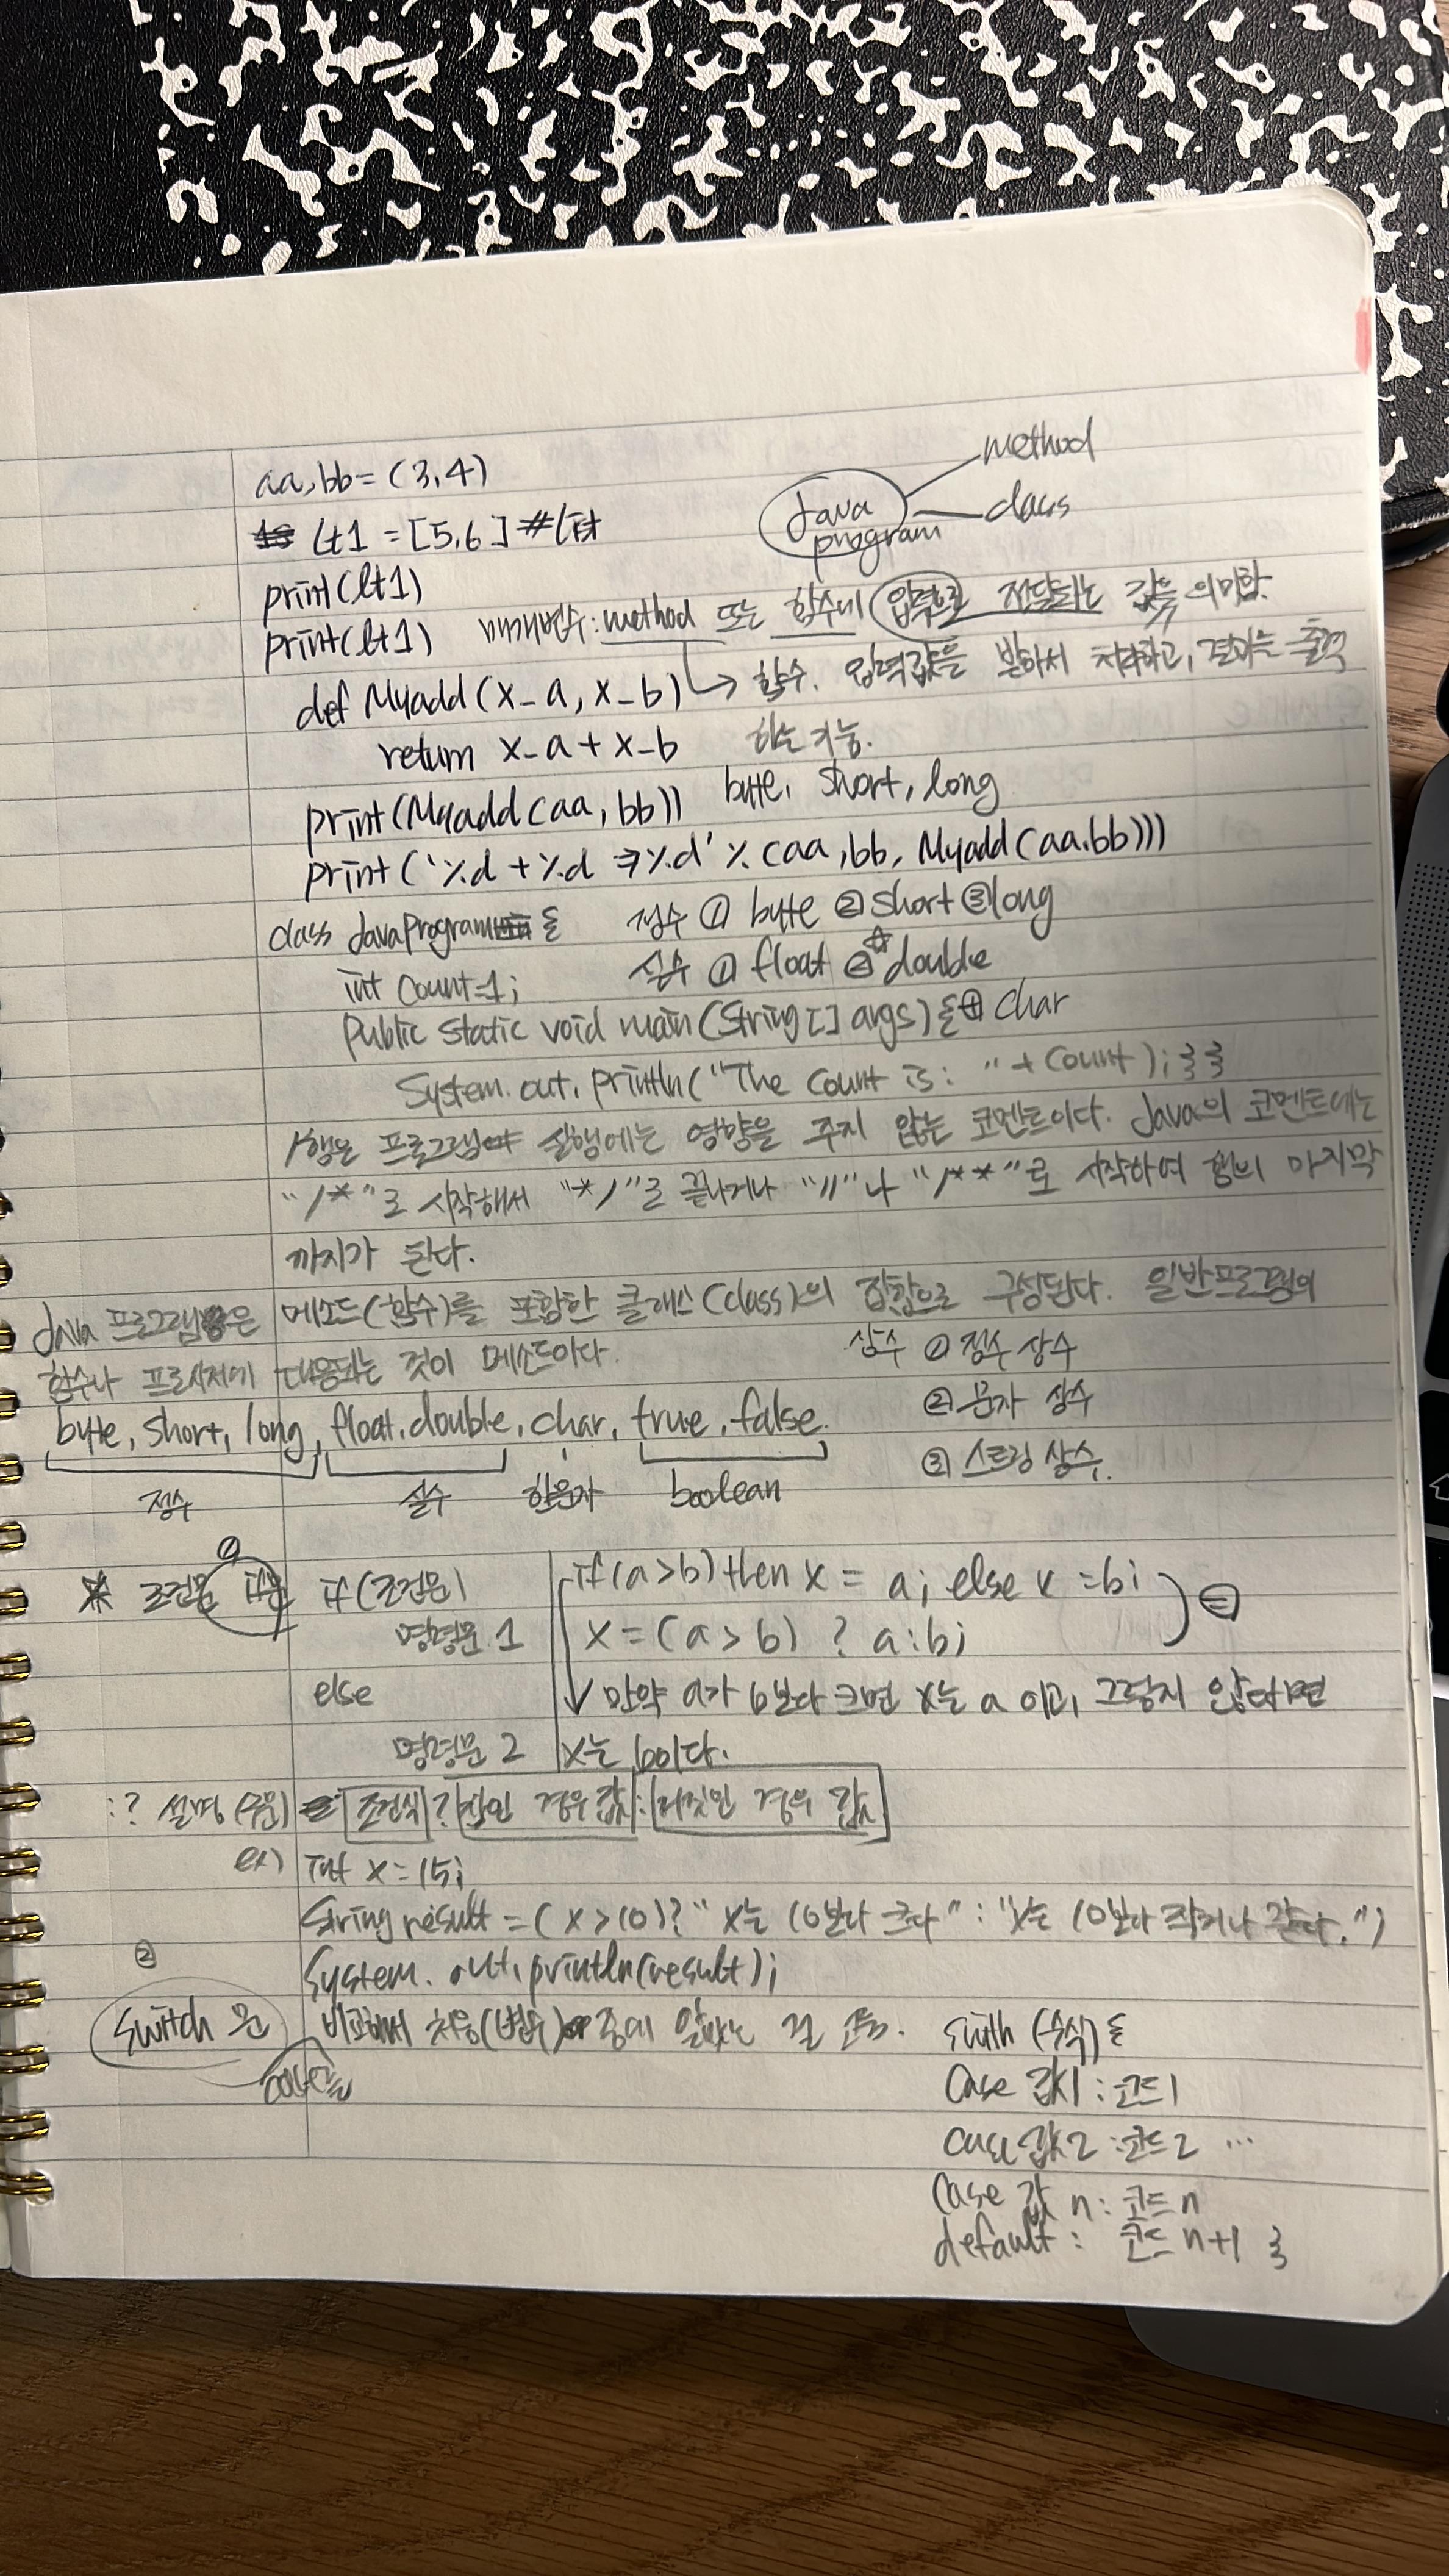 aa, bb = (3, 4)
method
lt1 = [5, 6] #list
Java program
class
print(lt1)
print(lt1)
매개변수: method 또는 함수에 입력으로 전달되는 값을 의미함.
def Myadd(x_a, x_b)
→ 함수. 입력값을 받아서 처리하고, 결과를 출력
return x_a + x_b
하는 기능.
print(Myadd(aa, bb))
byte, short, long
print('%d + %d => %d' % (aa, bb, Myadd(aa, bb)))
class JavaProgram {
정수 ① byte ② short ③ long
int count=1;
실수 ① float ②☆ double
Public static void main(String[] args) {
④ char
System.out.println("The count is: " + count); } }
1행은 프로그램 실행에는 영향을 주지 않는 코멘트이다. Java의 코멘트에는
"/*"로 시작해서 "*/"로 끝나거나 "//"나 "/**"로 시작하여 행의 마지막
까지가 된다.
Java 프로그램은 메소드(함수)를 포함한 클래스(class)의 집합으로 구성된다. 일반프로그램의
함수나 프로시저에 대응되는 것이 메소드이다.
상수 ① 정수 상수
② 문자 상수
③ 스트링 상수.
byte, short, long, float, double, char, true, false.
정수 실수 한문자 boolean
* 조건문 ① if문
if(조건문)
명령문 1
else
명령문 2
if(a>b) then x = a; else x = b;
x = (a > b) ? a:b;
=
↓ 만약 a가 b보다 크면 x는 a 이고, 그렇지 않다면
x는 b이다.
:? 설명 (주문) 조건식 ? 참인 경우 값 : 거짓인 경우 값
ex) int x = 15;
String result = (x > 10) ? "x는 10보다 크다" : "x는 10보다 작거나 같다.")
System.out.println(result);
② switch 문
비교해서 처음(변수) 중에 알맞는 걸 고름.
swith (수식) {
Case 값1 : 코드1
case 값2 : 코드2 ...
Case 값 n : 코드 n
default : 코드 n+1 }